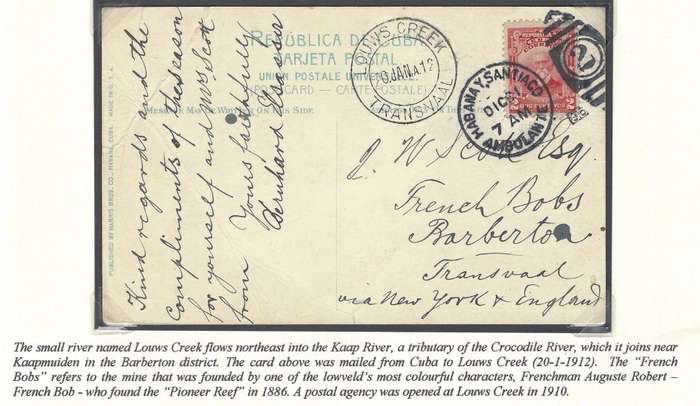 REPÚBLICA DE CUBA
TARJETA POSTAL
UNION POSTALE UNIVERSELLE
POST CARD — CARTE POSTALE
MESSAGE MAY BE WRITTEN ON THIS SIDE.
PUBLISHED BY HARRIS BROS. CO., HAVANA, CUBA. MADE IN U.S.A.
LOUWS CREEK
20 JAN 12
TRANSVAAL
HABANA Y. SANTIAGO
DIC 31
7 AM
AMBULANTE
21
Kind regards and the
compliments of the season
for yourself and Mrs Scott
from Yours faithfully
Bernhard
J. W Scott Esq.
French Bobs
Barberton
Transvaal
via New York & England
The small river named Louws Creek flows northeast into the Kaap River, a tributary of the Crocodile River, which it joins near
Kaapmuiden in the Barberton district. The card above was mailed from Cuba to Louws Creek (20-1-1912). The “French
Bobs” refers to the mine that was founded by one of the lowveld's most colourful characters, Frenchman Auguste Robert –
French Bob - who found the “Pioneer Reef” in 1886. A postal agency was opened at Louws Creek in 1910.